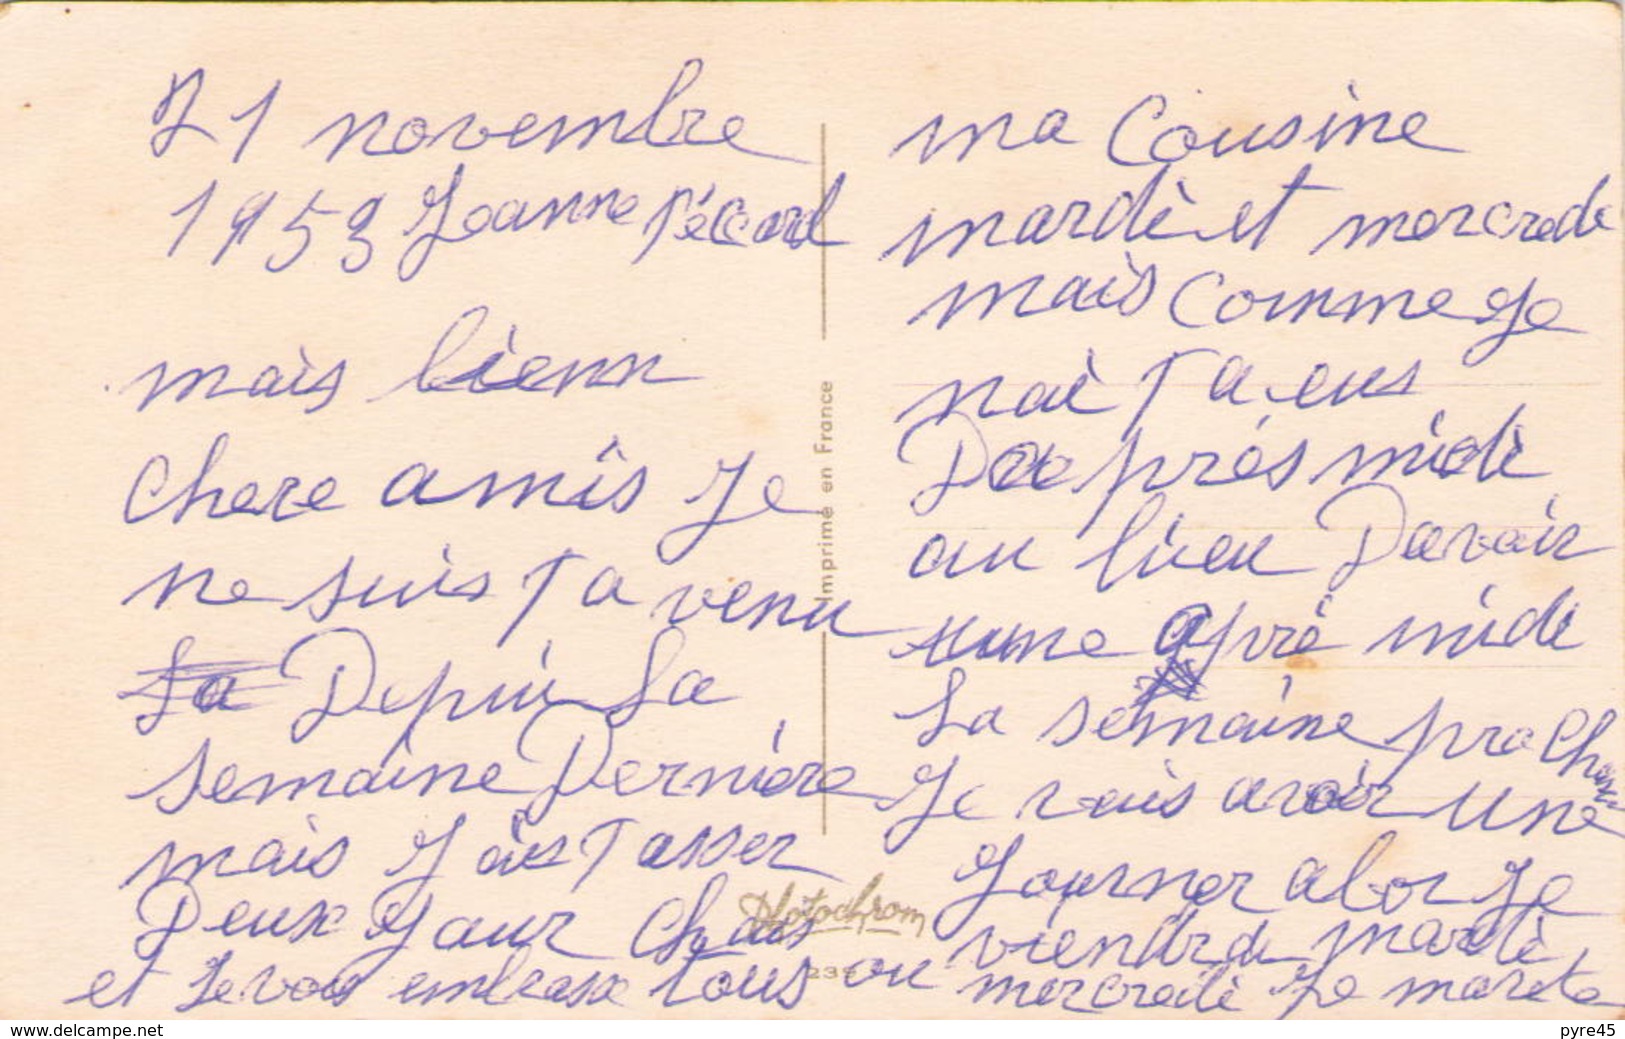 21 novembre
1953 Jeanne Pécard
mais bienn
chere amis Je
ne suis Pa venu
La Depui La
semaine Derniere
mais J ais Passer
Deux Jour chais
ma Cousine
mardi et mercredi
mais Comme Je
nai Pa eus
D après midi
au lieu Davoir
une aprè midi
La semaine prochaine
Je vais avoir une
Journer alor Je
viendrde mardi
ou mercredi Je marete
et Je vous embrasse tous
Imprimé en France
Photochrom
www.delcampe.net
pyre45